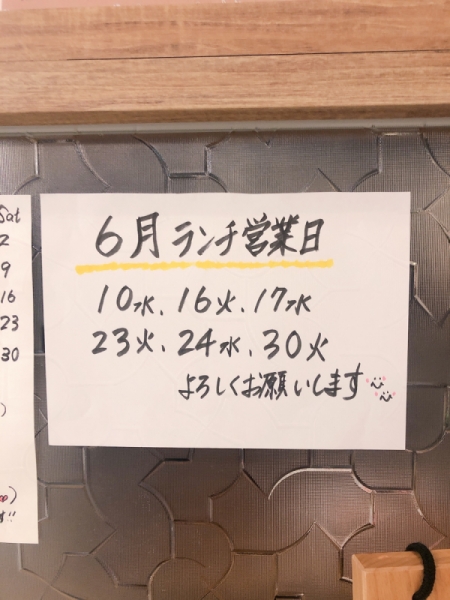 6月ランチ営業日
10水、16火、17水
23火、24水、30火
よろしくお願いします
Sat
2
9
16
23
30